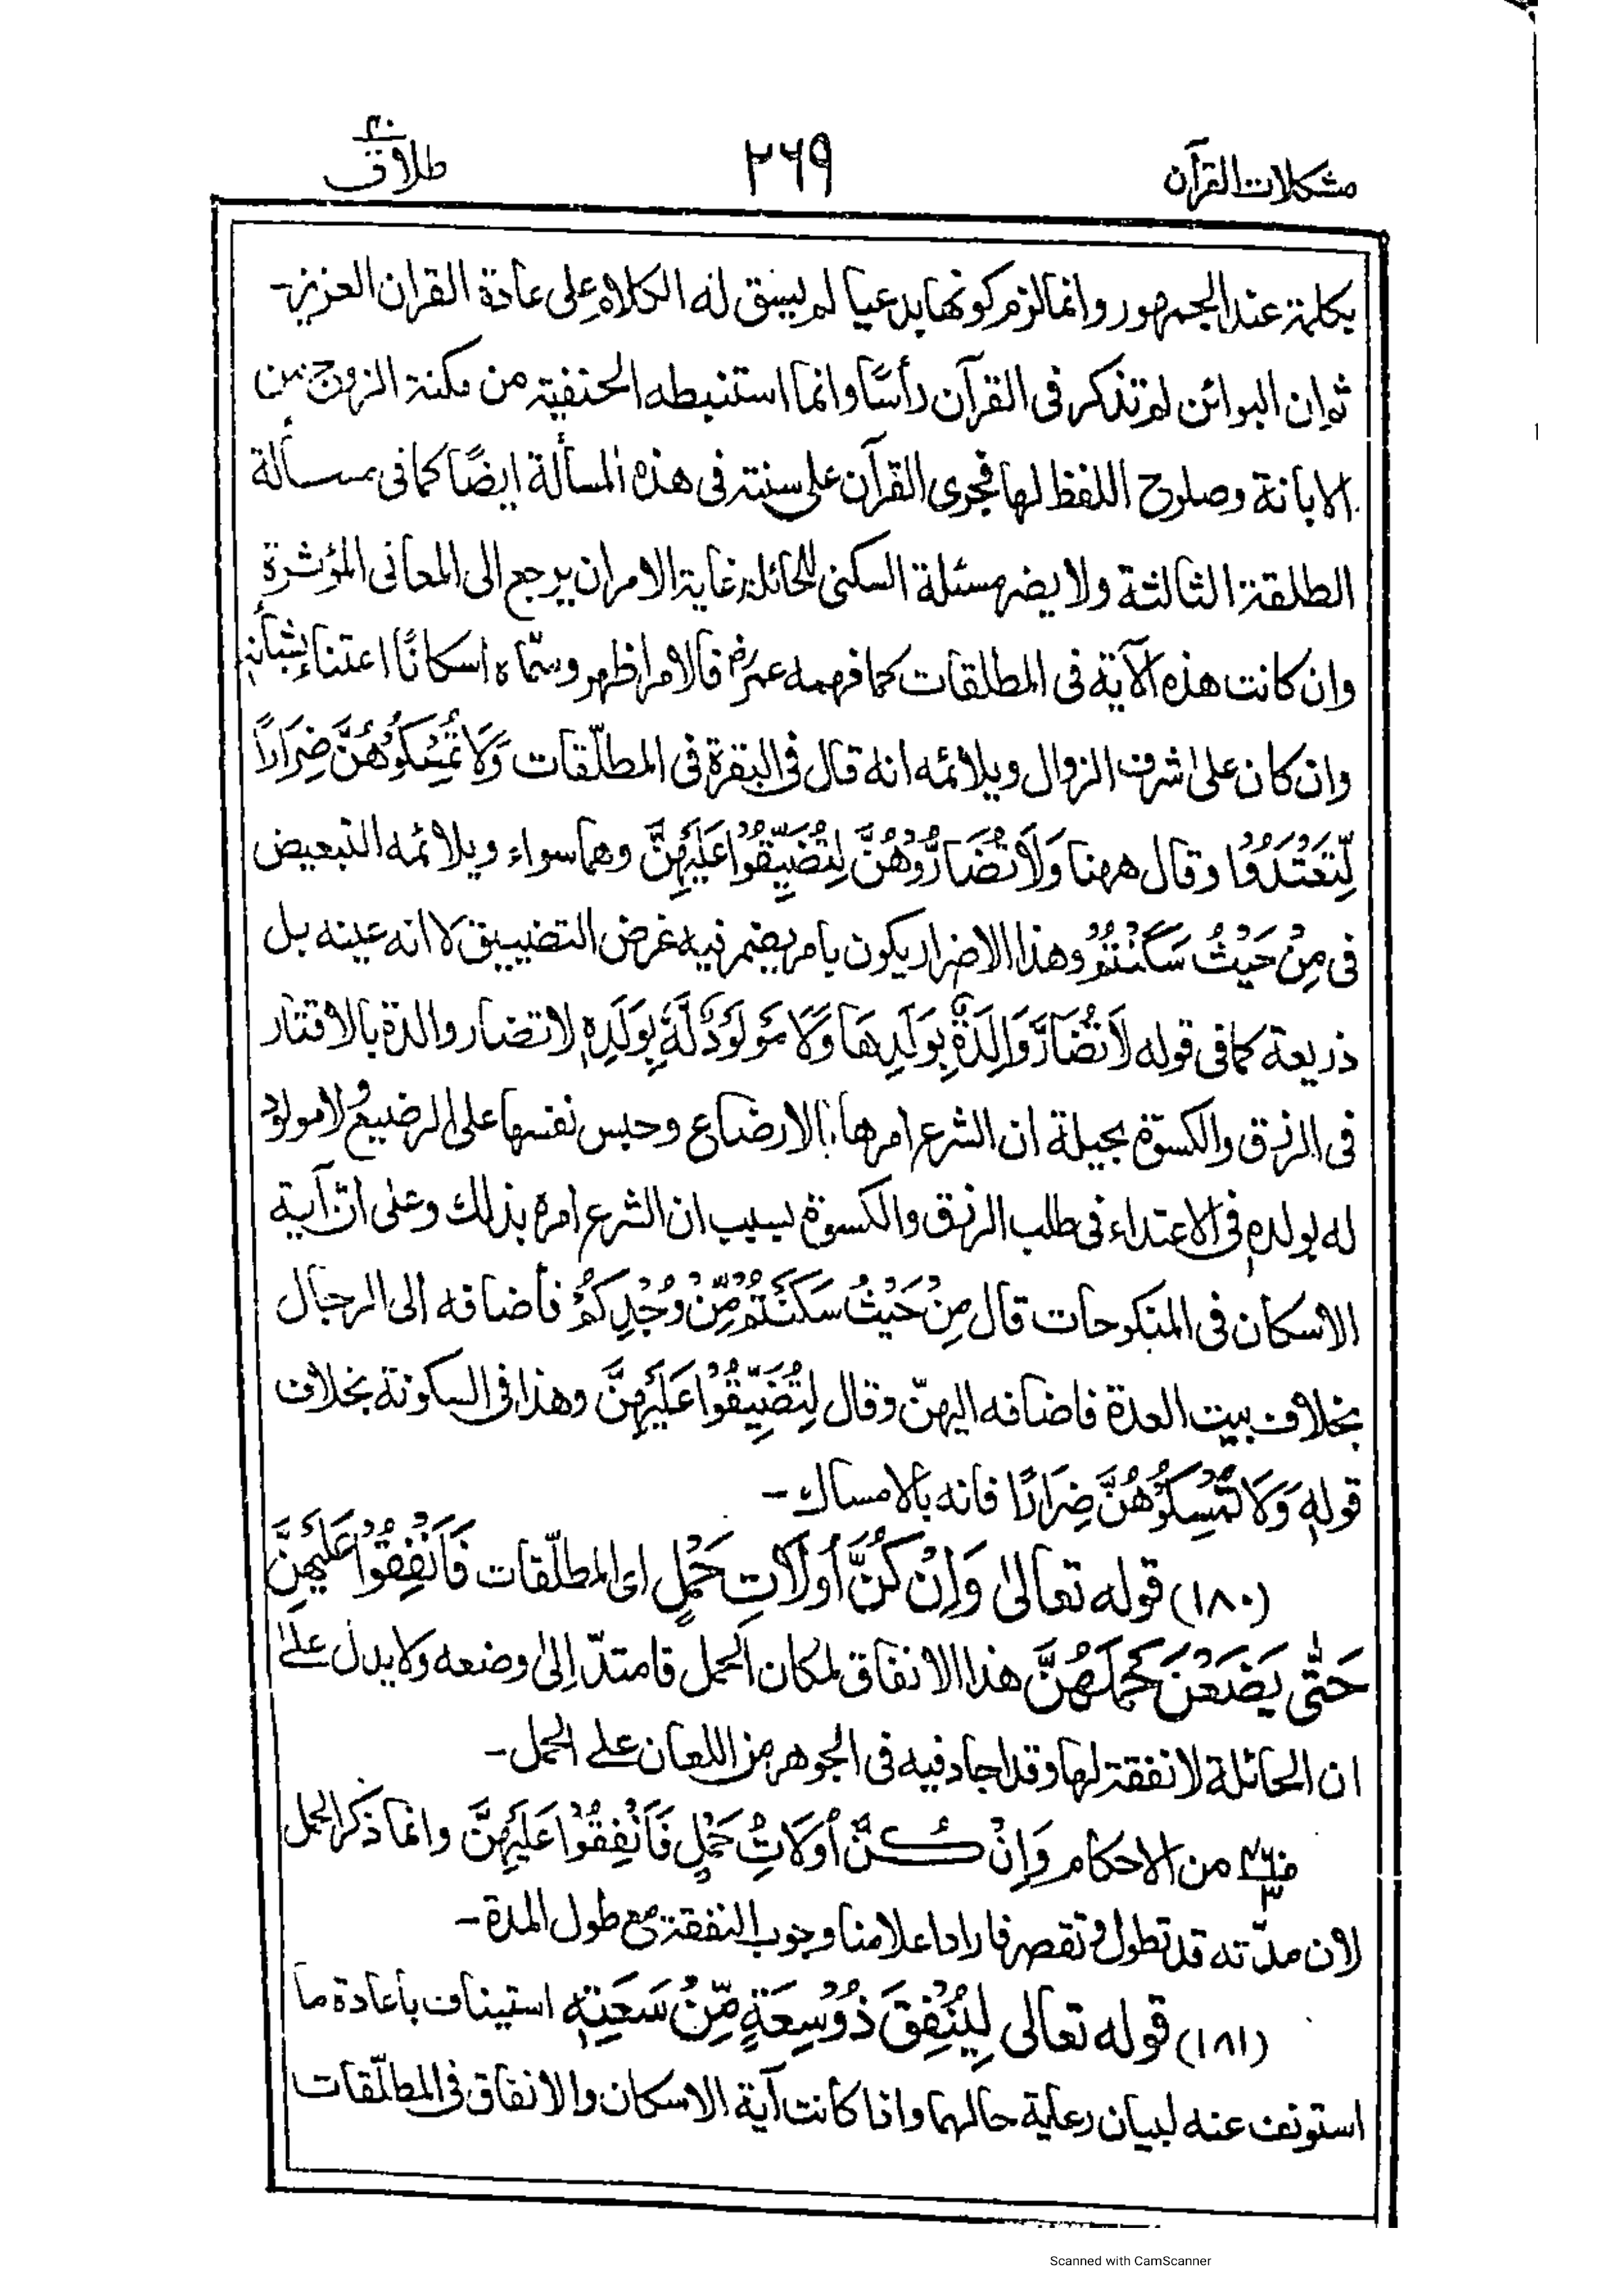 مشکلات القرآن ۲۶۹ طلاق
بکلمة عند الجمهور وانما لزم کونها بدعیا لم یسق له الکلام علی عادة القران العزیز-
ثم ان البوائن لم تذکر فی القرآن رأسًا وانما استنبطه الحنفیة من مکنة الزوج من
الابانة وصلوح اللفظ لها فجری القرآن علی سنته فی هذه المسألة ایضًا کما فی مسألة
الطلقة الثالثة ولا یضر مسئلة السکنی للحائلة غایة الامر ان یرجع الی المعانی المؤثرة
وان کانت هذه الآیة فی المطلقات کما فهمه عمرؓ فالامر اظهر وسمّاه اسکانًا اعتناء بشأنه
وان کان علیٰ شرف الزوال ویلائمه انه قال فی البقرة فی المطلّقات وَلَا تُمْسِکُوْهُنَّ ضِرَارًا
لِّتَعْتَدُوْا وقال ههنا وَلَا تُضَارُّوْهُنَّ لِتُضَیِّقُوْا عَلَیْهِنَّ وهما سواء ویلائمه التبعیض
فی مِنْ حَیْثُ سَکَنْتُمْ وهذا الاضرار یکون بامر یضمر فیه غرض التضییق لا انه عینه بل
ذریعة کما فی قوله لَا تُضَارَّ وَالِدَةٌۢ بِوَلَدِهَا وَلَا مَوْلُوْدٌ لَّهٗ بِوَلَدِهٖ لا تضار والدة بالاقتار
فی الرزق والکسوة بحیلة ان الشرع امرها بالارضاع وحبس نفسها علی الرضیع ولا مولود
له بولدهٖ فی الاعتداء فی طلب الرزق والکسوة بسبب ان الشرع امره بذلك وعلی انّ آیة
الاسکان فی المنکوحات قال مِنْ حَیْثُ سَکَنْتُمْ مِّنْ وُّجْدِکُمْ فأضافه الی الرجال
بخلاف بیت العدة فاضافه الیهنّ وقال لِتُضَیِّقُوْا عَلَیْهِنَّ وهذا فی السکونة بخلاف
قولهٖ وَلَا تُمْسِکُوْهُنَّ ضِرَارًا فانه بالامساك-
(۱۸۰) قوله تعالیٰ وَاِنْ کُنَّ اُولَاتِ حَمْلٍ ای المطلّقات فَاَنْفِقُوْا عَلَیْهِنَّ
حَتّٰی یَضَعْنَ حَمْلَهُنَّ هذا الانفاق لمکان الحمل فامتدّ اِلیٰ وضعه ولا یدل علیٰ
ان الحائلة لا نفقة لها وقد اجاد فیه فی الجوهر من اللعان علی الحمل-
من الاحکام وَاِنْ کُنَّ اُولَاتِ حَمْلٍ فَاَنْفِقُوْا عَلَیْهِنَّ وانما ذکر الحمل
لان مدّته قد تطول وتقصر فاراد اعلامنا وجوب النفقة مع طول المدة-
(۱۸۱) قوله تعالی لِیُنْفِقْ ذُوْ سِعَةٍ مِّنْ سَعَتِهٖ استیناف باعادة ما
استونف عنه لبیان رعایة حالهما واذا کانت آیة الاسکان والانفاق فی المطلّقات
Scanned with CamScanner